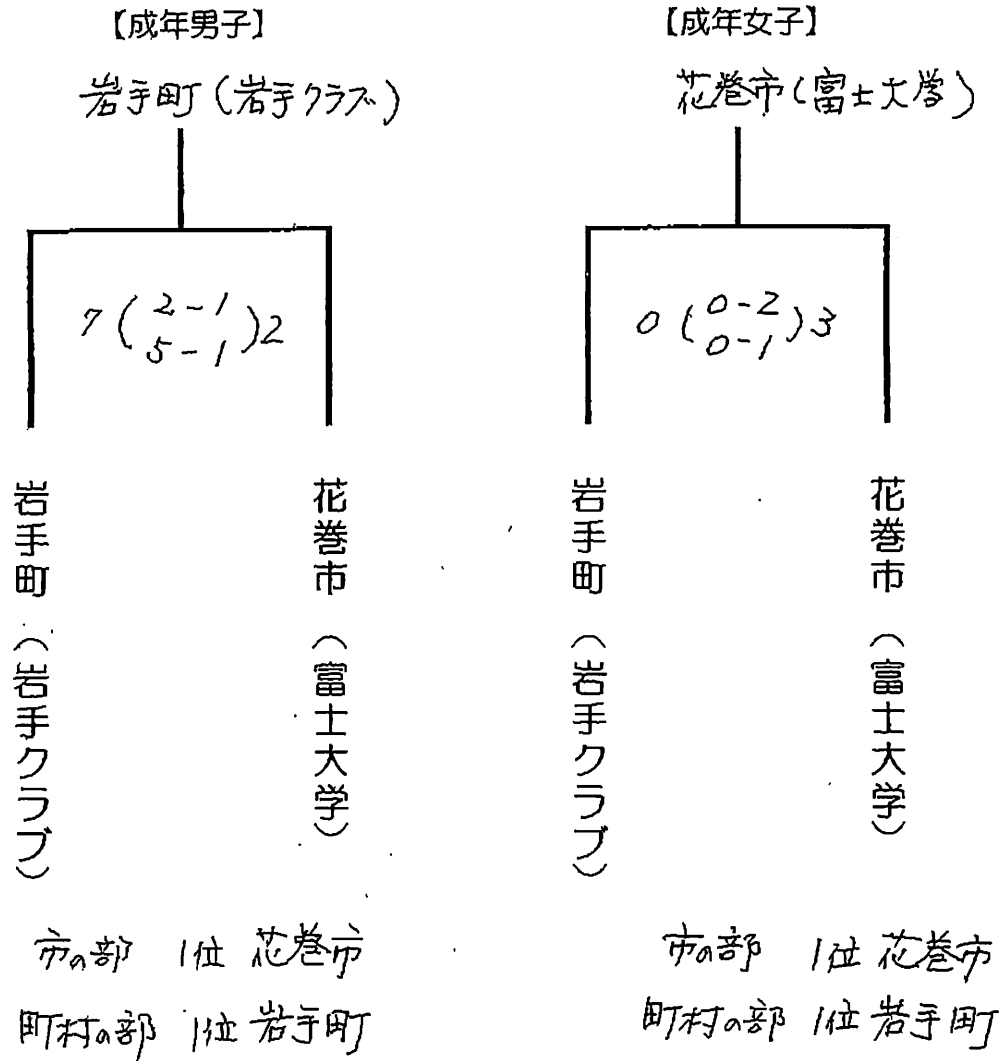 【成年男子】
岩手町(岩手クラブ)
7(2-1
5-1)2
岩手町(岩手クラブ)
花巻市(富士大学)
市の部 1位 花巻市
町村の部 1位 岩手町
【成年女子】
花巻市(富士大学)
0(0-2
0-1)3
岩手町(岩手クラブ)
花巻市(富士大学)
市の部 1位 花巻市
町村の部 1位 岩手町